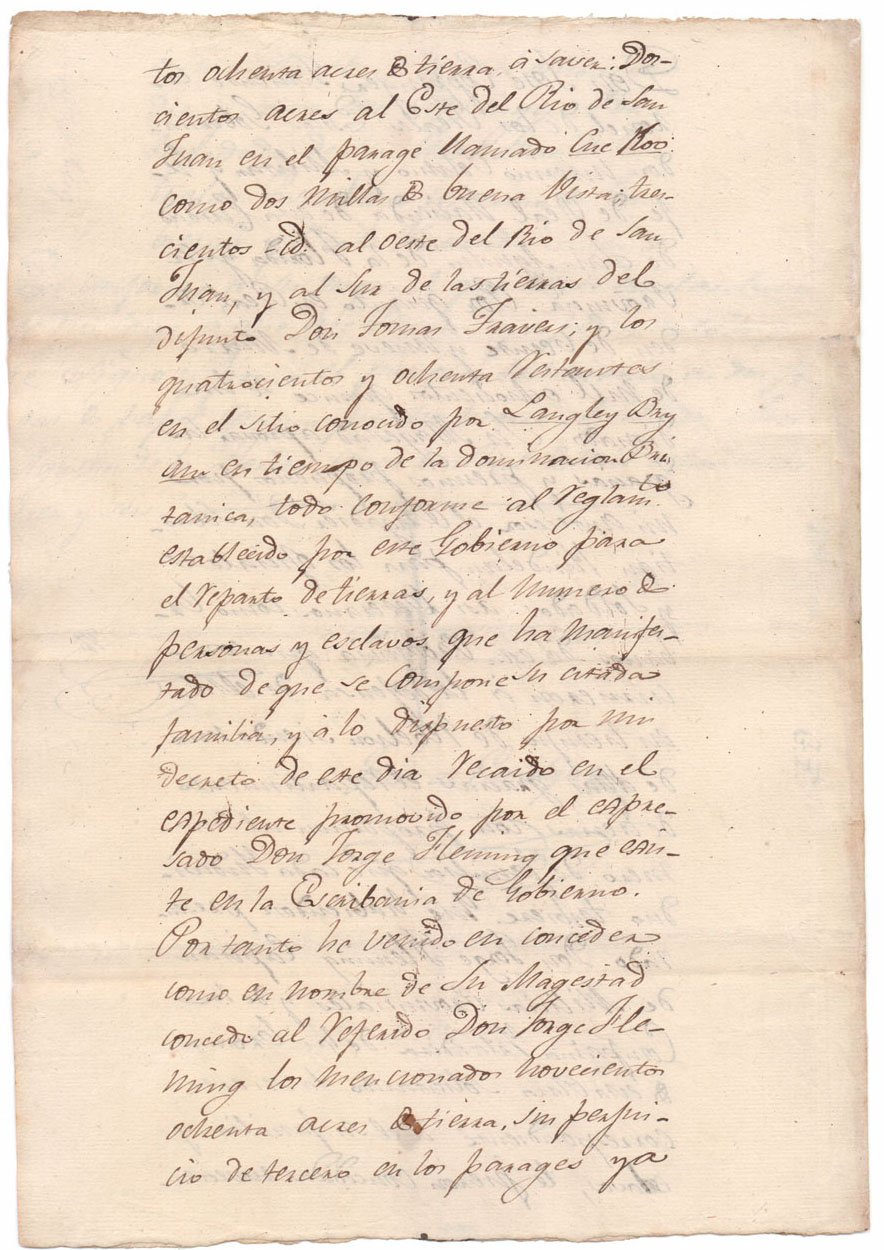 tos ochenta acres de tierra, à saver: Dos-
cientos acres al Este del Rio de San
Juan en el parage llamado Cue Roo:
como dos millas de buena Vista; tres-
cientos id. al oeste del Rio de San
Juan, y al Sur de las tierras del
difunto Don Tomas Traveis; y los
quatrocientos y ochenta restantes
en el sitio conocido por Langley Bry
am en tiempo de la dominacion Bri
tanica, todo conforme al Reglamto
establecido por este Gobierno para
el reparto de tierras, y al numero de
personas y esclavos que ha manifes-
tado de que se compone su citada
familia, y à lo dispuesto por mi
decreto de este dia recaido en el
espediente promovido por el espre-
sado Don Jorge Fleming que exis-
te en la Escribania de Gobierno.
Por tanto he venido en conceder
como en nombre de Su Magestad
concedo al referido Don Jorge Fle-
ming los mencionados novecientos
ochenta acres de tierra, sin perjui-
cio de tercero en los parages ya